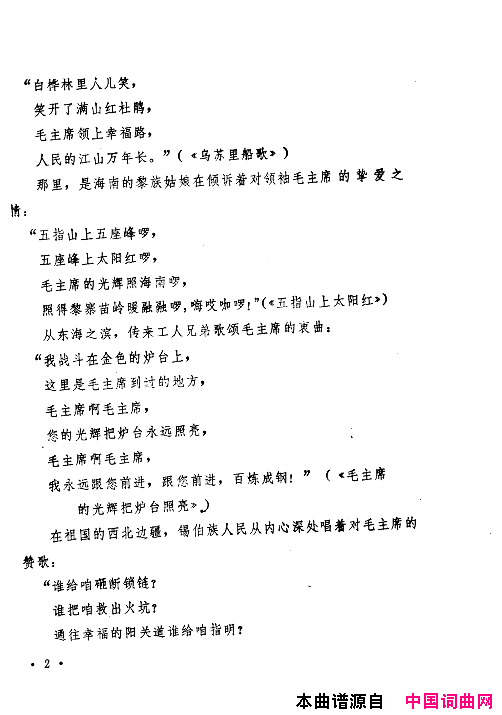 “白桦林里人儿笑，
笑开了满山红杜鹃，
毛主席领上幸福路，
人民的江山万年长。”(《乌苏里船歌》)
那里，是海南的黎族姑娘在倾诉着对领袖毛主席的挚爱之
情：
“五指山上五座峰啰，
五座峰上太阳红啰，
毛主席的光辉照海南啰，
照得黎寨苗岭暖融融啰，嗨哎咖啰！”(《五指山上太阳红》)
从东海之滨，传来工人兄弟歌颂毛主席的衷曲：
“我战斗在金色的炉台上，
这里是毛主席到过的地方，
毛主席啊毛主席，
您的光辉把炉台永远照亮，
毛主席啊毛主席，
我永远跟您前进，跟您前进，百炼成钢！”(《毛主席
的光辉把炉台照亮》)
在祖国的西北边疆，锡伯族人民从内心深处唱着对毛主席的
赞歌：
“谁给咱砸断锁链？
谁把咱救出火坑？
通往幸福的阳关道谁给咱指明？
· 2 ·
本曲谱源自 中国词曲网